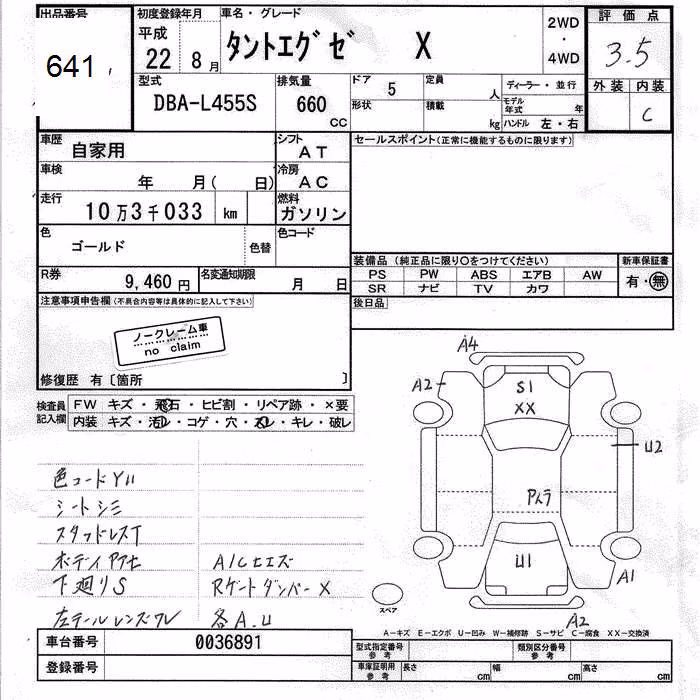 出品番号 初度登録年月 車名・グレード 2WD・4WD 評価点
641 平成 22 8月 タントエグゼ X 3.5
型式 排気量 ドア 5 定員 人 ディーラー・並行 外装 内装
DBA-L455S 660cc 形状 積載 kg モデル年式 年 C
ハンドル 左・右
車歴 自家用 シフト AT セールスポイント(正常に機能するものに限ります)
車検 年 月( 日) 冷房 AC
走行 10万3千033 km 燃料 ガソリン
色 ゴールド 色替 色コード
装備品(純正品に限り○をつけてください) 新車保証書
R券 9,460円 名変通知期限 月 日 PS PW ABS エアB AW 有・無
SR ナビ TV カワ
注意事項申告欄(不具合内容等は具体的に記入して下さい) 後日品
ノークレーム車
no claim
修復歴 有〔箇所 〕
検査員記入欄 FW キズ・飛石・ヒビ割・リペア跡・×要
内装 キズ・汚レ・コゲ・穴・スレ・キレ・破レ
A4
A2 S1
XX
U2
U1
A1
スペア
A2
色コードY11
シートシミ
スタッドレスT
下廻りS Rゲートダンパーx
左テールレンズワレ 各A.U
A-キズ E-エクボ U-凹み W-補修跡 S-サビ C-腐食 XX-交換済
車台番号 0036891 型式指定番号 参考 類別区分番号 参考
登録番号 車庫証明用 参考 長さ cm 幅 cm 高さ cm